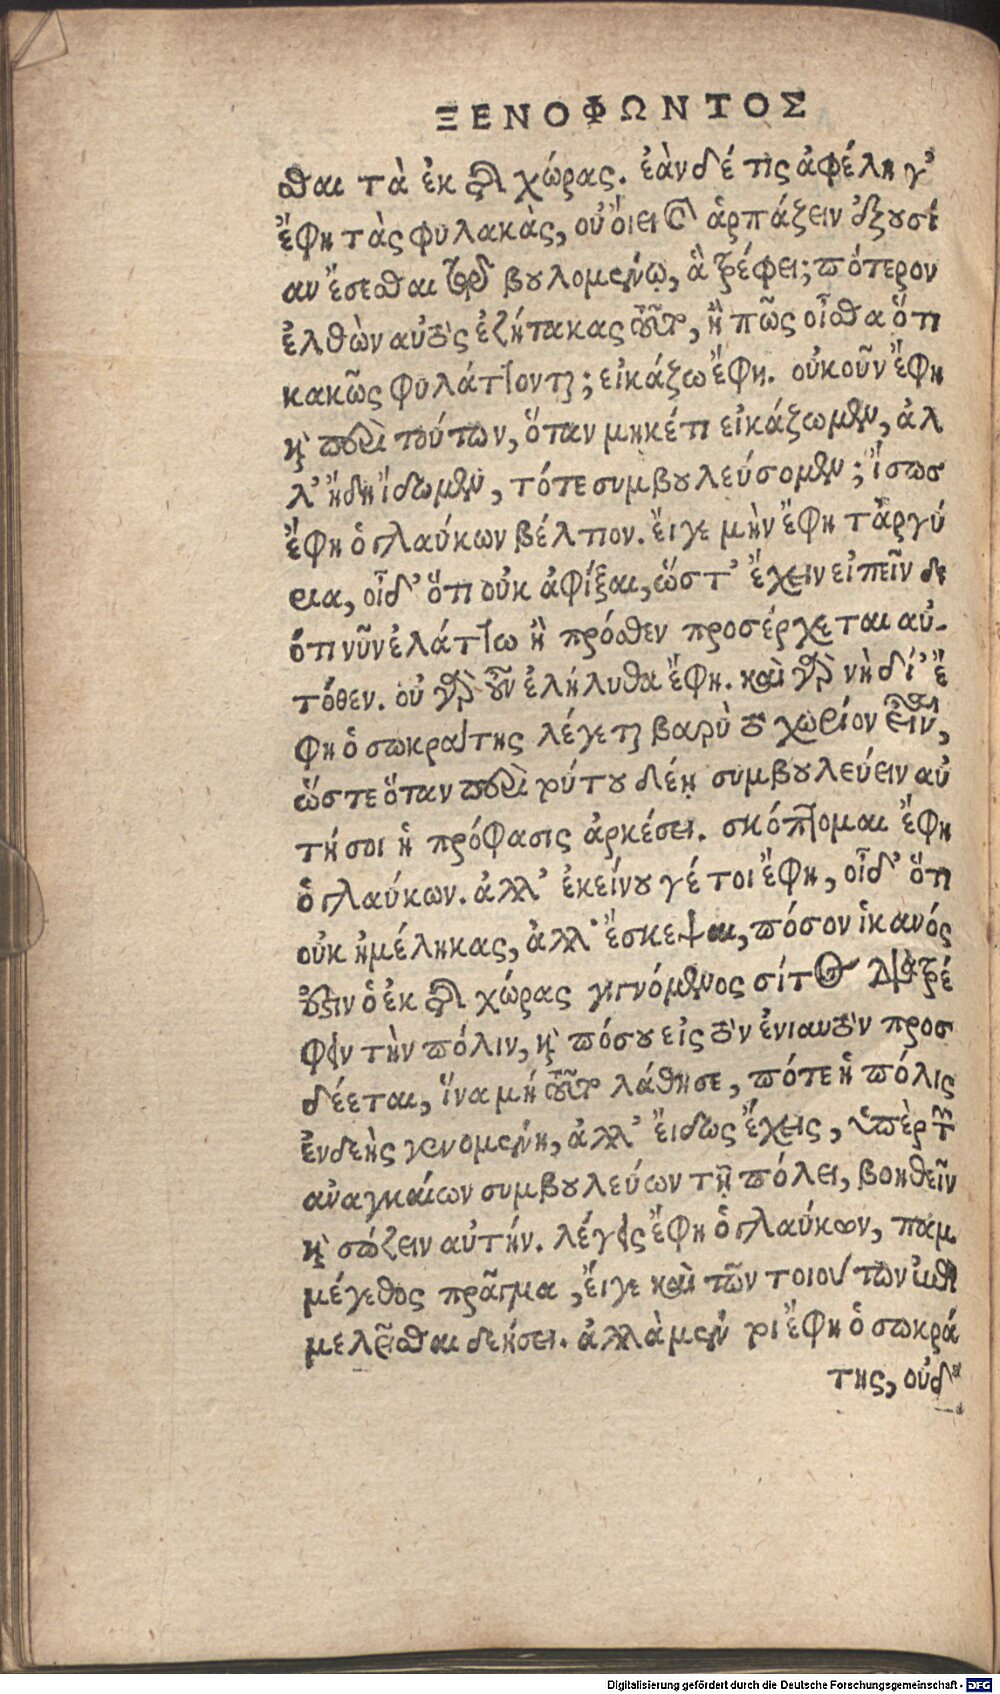 ΞΕΝΟΦΩΝΤΟΣ
σθαι τὰ ἐκ τῆς χώρας. ἐὰν δέ τις ἀφέλη γ’
ἔφη τὰς φυλακὰς, οὐ ὄιει καὶ ἁρπάζειν ἐξουσί
αν ἔσεσθαι τῷ βουλομένῳ, ἀτὰρ ἔφει; πότερον
ἐλθὼν αὐτὸς ἐζήτακας τοῦτο, ἢ πῶς οἶσθα ὅτι
κακῶς φυλάττονται; εἰκάζω ἔφη. οὐκοῦν ἔφη
καὶ περὶ τούτων, ὅταν μηκέτι εἰκάζωμεν, ἀλ
λ’ ἤδη ἴδωμεν, τότε συμβουλεύσομεν; ἴσως
ἔφη ὁ γλαύκων βέλτιον. ἔιγε μὴν ἔφη τἀργύ
ρια, οἶδ’ ὅτι οὐκ ἀφίξαι, ὥστ’ ἔχειν εἰπεῖν δι
ότι νῦν ἐλάττω ἢ πρόσθεν προσέρχεται αὐ-
τόθεν. οὐ γὰρ οὖν ἐλήλυθα ἔφη. καὶ γὰρ νὴ δί’ ἔ
φη ὁ σωκράτης λέγεται βαρὺ τὸ χωρίον εἶναι,
ὥστε ὅταν περὶ ρύτου δέῃ συμβουλεύειν αὐ
τή σοι ἡ πρόφασις ἀρκέσει. σκόπτομαι ἔφη
ὁ γλαύκων. ἀλλ’ ἐκείνου γέ τοι ἔφη, οἶδ’ ὅτι
οὐκ ἠμέληκας, ἀλλ’ ἔσκεψαι, πόσον ἱκανός
ἐστιν ὁ ἐκ τῆς χώρας γιγνόμενος σίτος διατρέ
φειν τὴν πόλιν, καὶ πόσου εἰς τὸν ἐνιαυτὸν προσ
δέεται, ἵνα μή τοῦτο λάθησε, πότε ἡ πόλις
ἐνδεὴς γενομένη, ἀλλ’ ἔιδὼς ἔχεις, ὑπὲρ τῶν
αναγκαίων συμβουλεύων τῇ πόλει, βοηθεῖν
καὶ σώζειν αὐτήν. λέγεις ἔφη ὁ γλαύκων, παμ
μέγεθος πρᾶγμα, ἔιγε καὶ τῶν τοιούτων ἐπι
μελεῖσθαι δεήσει. ἀλλὰ μέν ρι ἔφη ὁ σωκρά
της, οὐδ’